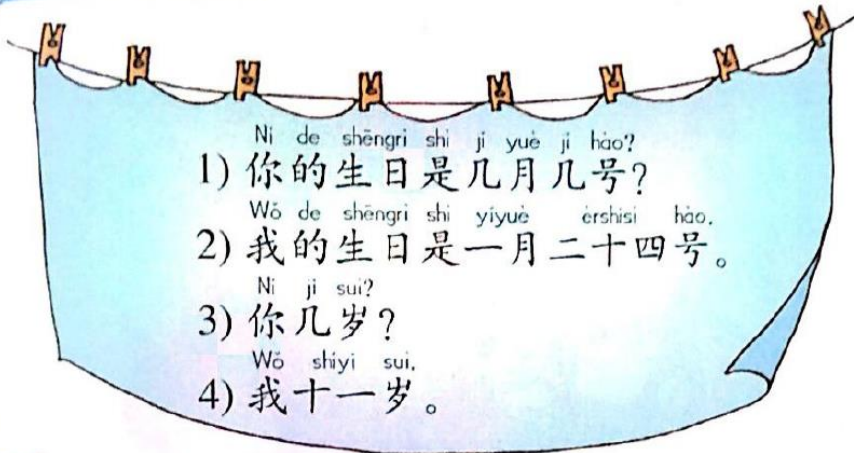 Nǐ de shēngrì shì jǐ yuè jǐ hào?
1) 你的生日是几月几号?
Wǒ de shēngrì shì yīyuè èrshísì hào.
2) 我的生日是一月二十四号。
Nǐ jǐ suì?
3) 你几岁?
Wǒ shíyī suì.
4) 我十一岁。